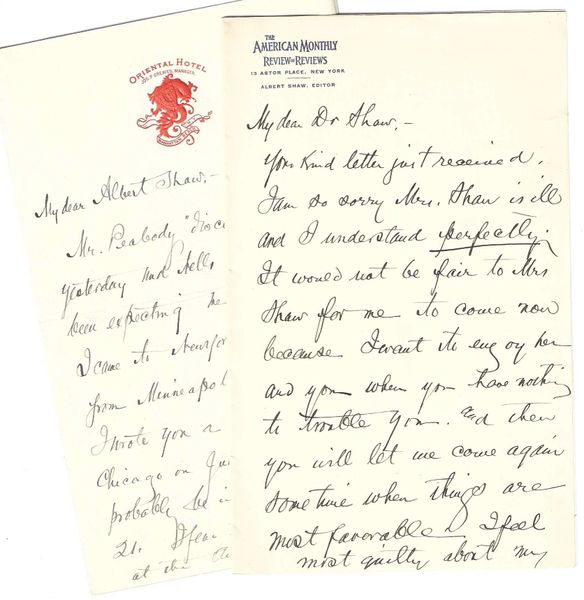 ORIENTAL HOTEL
JOS. P. GREAVES, MANAGER.
MANHATTAN BEACH
My dear Albert Shaw,–
Mr. Peabody "disc
yesterday and tells
been expecting me
I came to New
from Minneapol
I wrote you a
Chicago on
probably be i
21. I fear
at the
THE
AMERICAN MONTHLY
REVIEW OF REVIEWS
13 ASTOR PLACE, NEW YORK
ALBERT SHAW, EDITOR
My dear Dr Shaw,–
Your kind letter just received.
I am so sorry Mrs. Shaw is ill
and I understand perfectly.
It would not be fair to Mrs
Shaw for me to come now
because I want to enjoy her
and you when you have nothing
to trouble you. And then
you will let me come again
sometime when things are
most favorable. I feel
most guilty about my